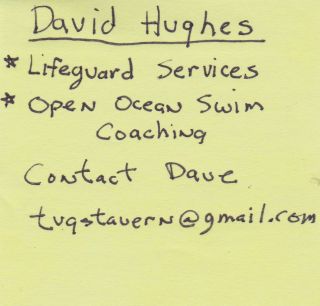 David Hughes
* Lifeguard Services
* Open Ocean Swim
Coaching
Contact Dave
tugstavern@gmail.com